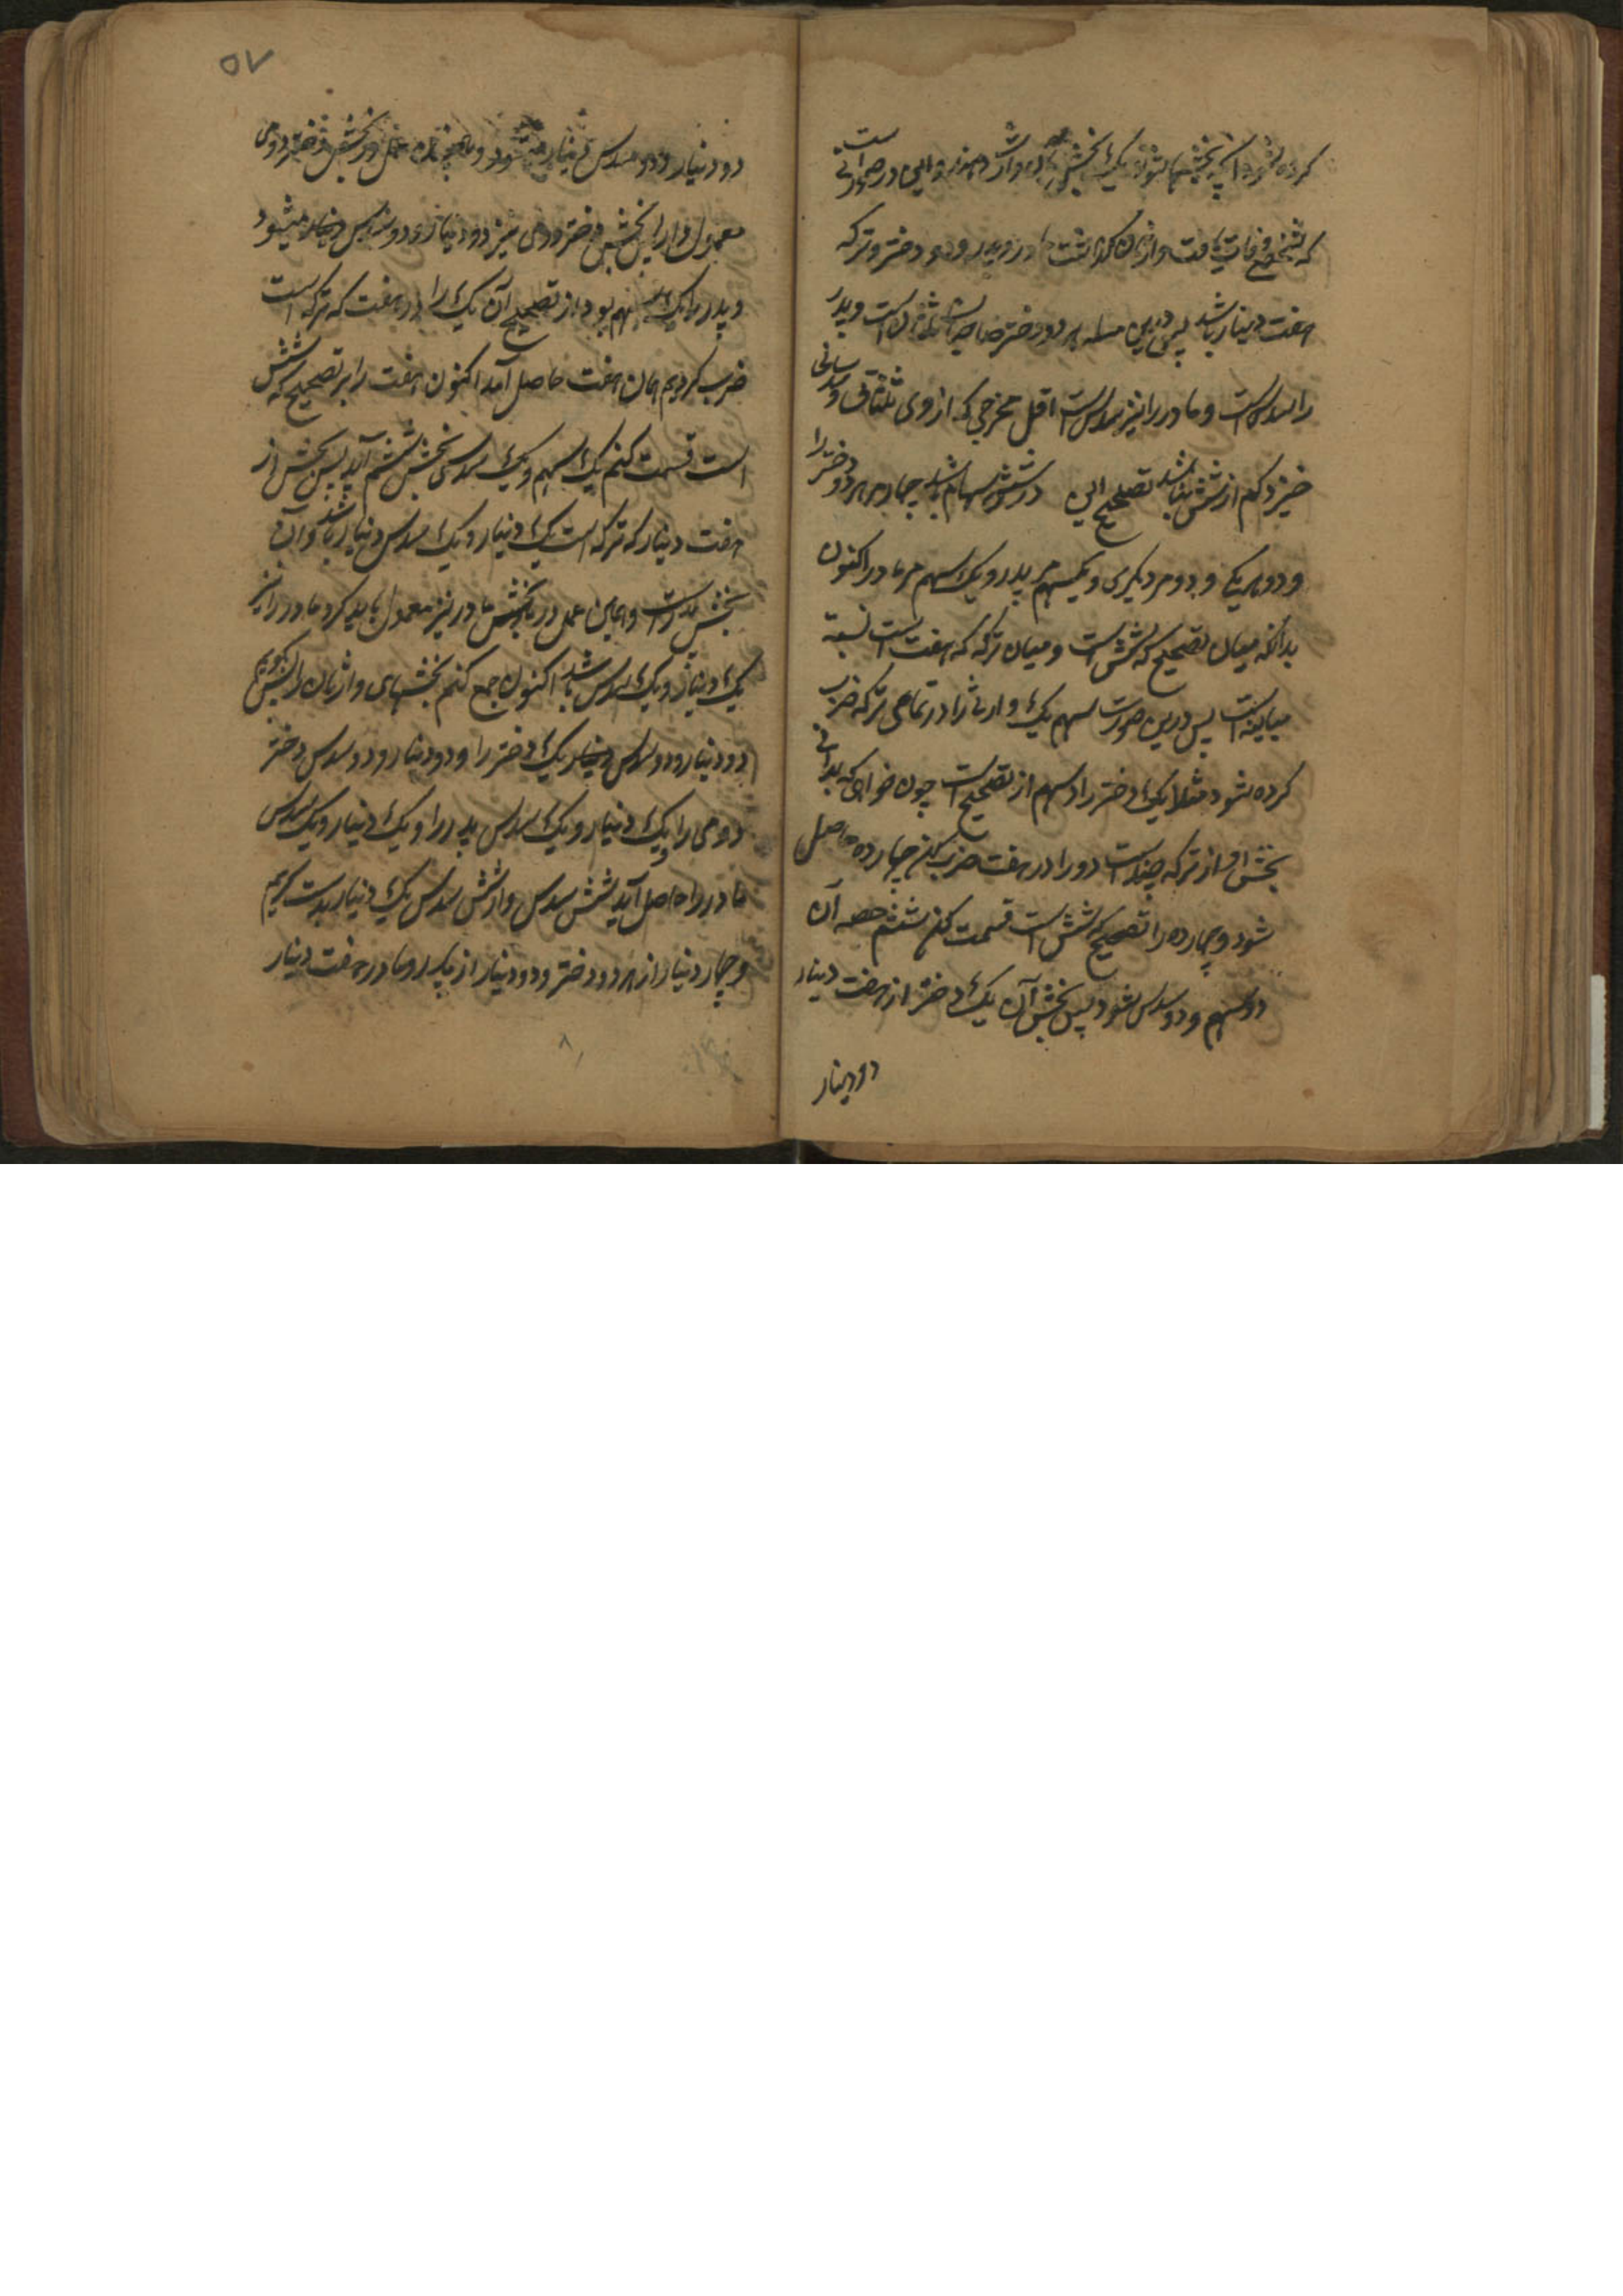 کرده شود آنچه بخشها شود یک بخش وارث دهند و این در صورتی است
که شخصی وفات یافت وارثان گذاشت مادر و پدر و دو دختر و ترکه
هفت دینار باشد پس درین مسله هر دو دختر صاحب ثلثان است و پدر
را سدس است و مادر را نیز سدس است اقل مخرجی که از وی ثلثانی و سدسانی
خیزد کم از شش نباشد تصحیح این در شش سهام باشد چهار مر هر دو دختر را
و دو مر یکی و دو مر دیگری و یکسهم مر پدر و یک سهم مر مادر اکنون
بدانکه میان تصحیح که شش است و میان ترکه که هفت است نسبة
مباینه است پس درین صورت سهم یک وارث را در تمامی ترکه ضرب
کرده شود مثلا یک دختر را دو سهم از تصحیح است چون خواهی که بدانی
بخش او از ترکه چند است دو را در هفت ضرب کن چهارده حاصل
شود و چهارده را تصحیح که شش است قسمت کنم ششم حصه آن
دو سهم و دو سدس شود پس بخش آن یک دختر از هفت دینار
دو دینار
۵۷
دو دینار و دو سدس دینار میشود و همچنان عمل در بخش دختر دومی
معمول دار این بخش دختر دومی نیز دو دینار و دو سدس دینار میشود
و پدر را یک سهم بود از تصحیح آن یک را در هفت که ترکه است
ضرب کردیم همان هفت حاصل آمد اکنون هفت را بر تصحیح که شش
است قسمت کنم یک سهم و یک سدسی بخش ششم آید پس بخش از
هفت دینار که ترکه است یک دینار و یک سدس دینار باشد و آن
بخش پدر است و همین عمل در بخش مادر نیز معمول باید کرد مادر را نیز
یک دینار و یک سدس باشد اکنون جمع کنم بخشهای وارثان را
دو دینار و دو سدس دینار یک دختر را و دو دینار و دو سدس دختر
دومی را و یک دینار و یک سدس پدر را و یک دینار و یک سدس
مادر را حاصل آید شش سدس و از شش سدس یک دینار بدست کریم
و چهار دینار از هر دو دختر و دو دینار از پدر و مادر هفت دینار